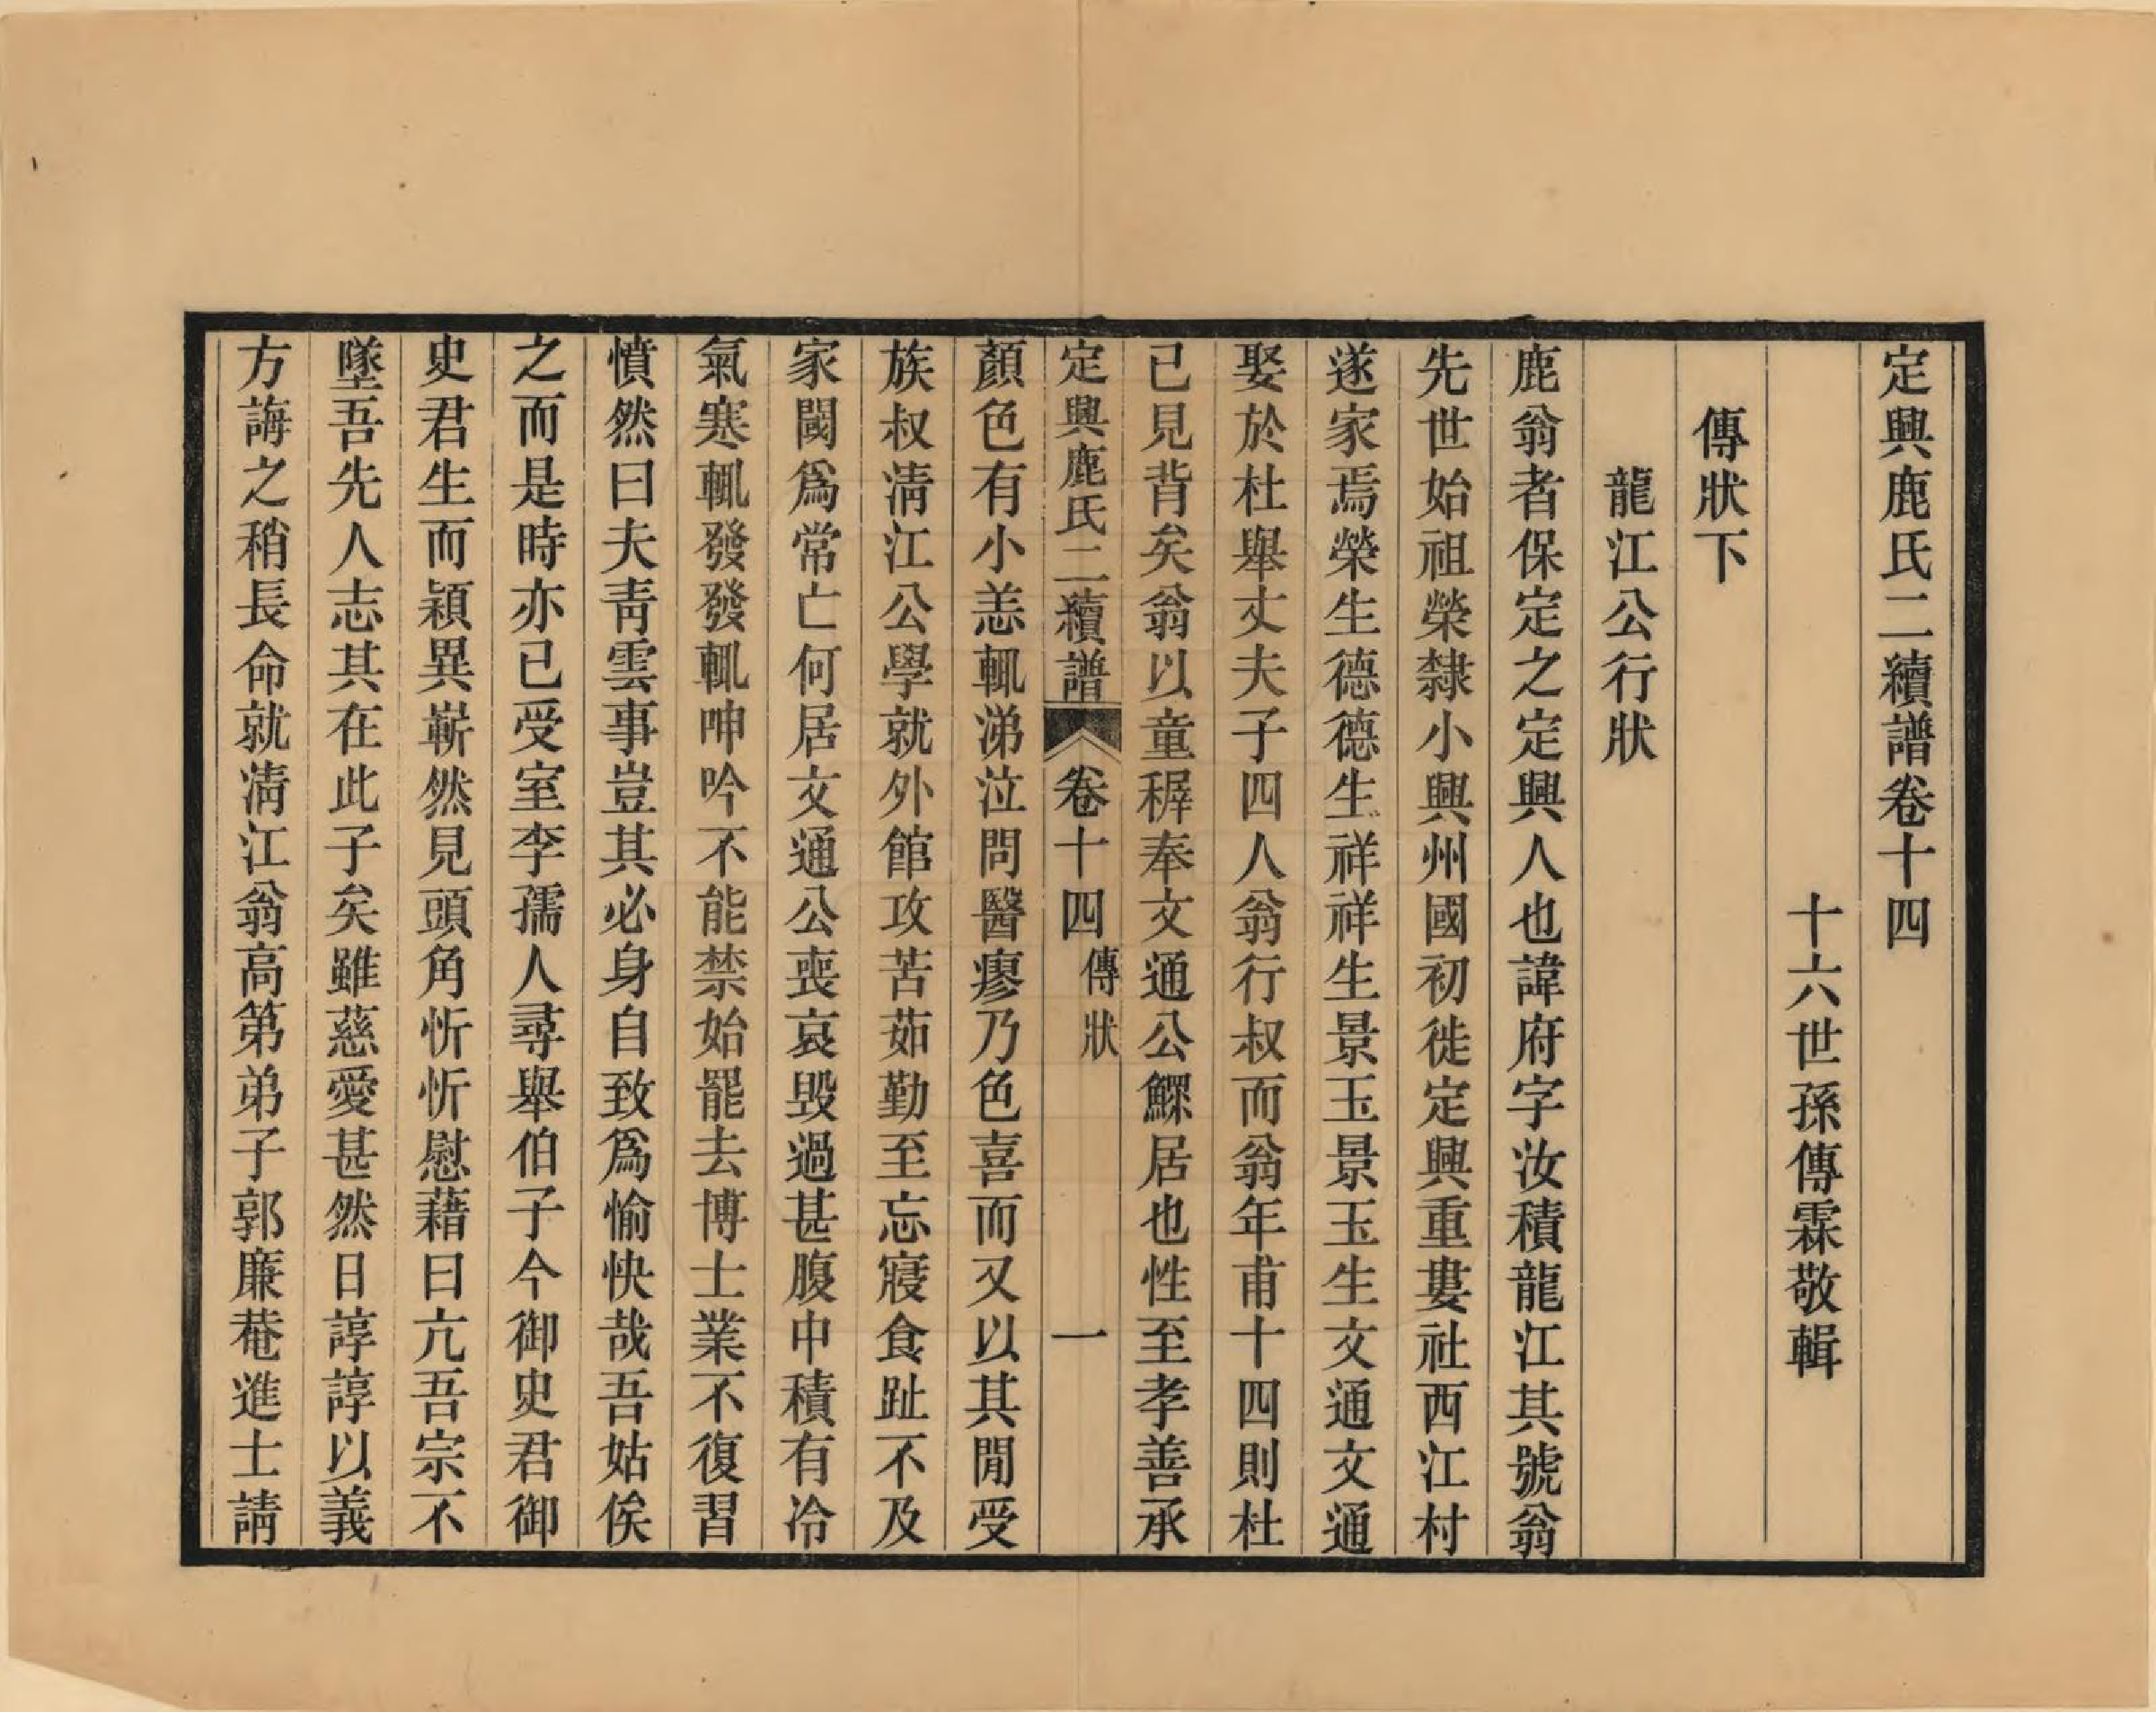 定興鹿氏二續譜卷十四
十六世孫傳霖敬輯
傳狀下
龍江公行狀
鹿翁者保定之定興人也諱府字汝積龍江其號翁
先世始祖榮隸小興州國初徙定興重婁社西江村
遂家焉榮生德德生祥祥生景玉景玉生文通文通
娶於杜舉丈夫子四人翁行叔而翁年甫十四則杜
已見背矣翁以童穉奉文通公鰥居也性至孝善承
定興鹿氏二續譜 卷十四 傳狀 一
顏色有小恙輒涕泣問醫瘳乃色喜而又以其閒受
族叔淸江公學就外館攻苦茹勤至忘寢食趾不及
家閾爲常亡何居文通公喪哀毁過甚腹中積有冷
氣寒輒發發輒呻吟不能禁始罷去博士業不復習
憤然曰夫靑雲事豈其必身自致爲愉快哉吾姑俟
之而是時亦已受室李孺人尋舉伯子今御史君御
史君生而穎異嶄然見頭角忻忻慰藉曰亢吾宗不
墜吾先人志其在此子矣雖慈愛甚然日諄諄以義
方誨之稍長命就淸江翁高第弟子郭廉菴進士請